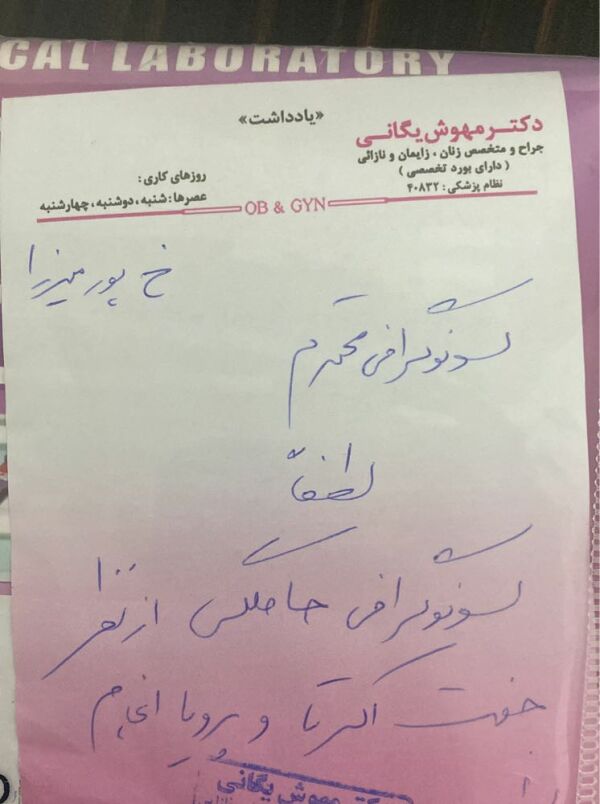 CAL LABORATORY
«یادداشت»
دکتر مهوش یگانی
جراح و متخصص زنان، زایمان و نازائی
(دارای بورد تخصصی)
نظام پزشکی: ۴۰۸۳۲
روزهای کاری:
عصرها: شنبه، دوشنبه، چهارشنبه
OB & GYN
خ پورمیرزا
سونوگرافی محترم
لطفاً
سونوگرافی حاملگی از نظر
جفت اکرتا و پرویا انجام
مهوش یگانی